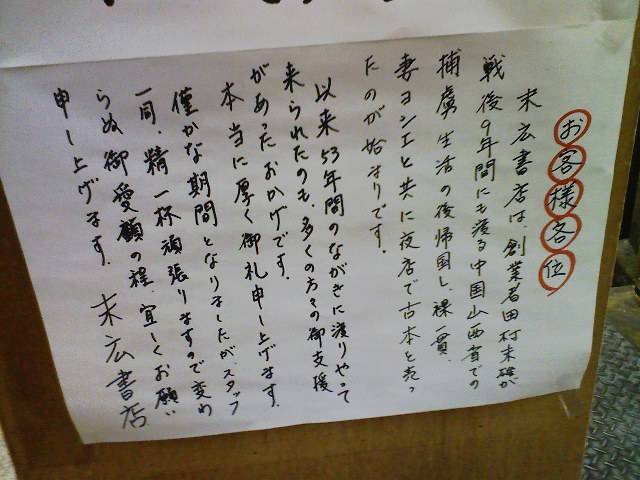 お客様各位
末広書店は、創業者田村末雄が
戦後9年間にも渡る中国山西省での
捕虜生活の後帰国し、裸一貫、
妻ヨシエと共に夜店で古本を売っ
たのが始まりです。
以来53年間のながきに渡りやって
来られたのも、多くの方々の御支援
があったおかげです。
本当に厚く御礼申し上げます。
僅かな期間となりましたが、スタッフ
一同、精一杯頑張りますので変わ
らぬ御愛顧の程、宜しくお願い
申し上げます。 末広書店